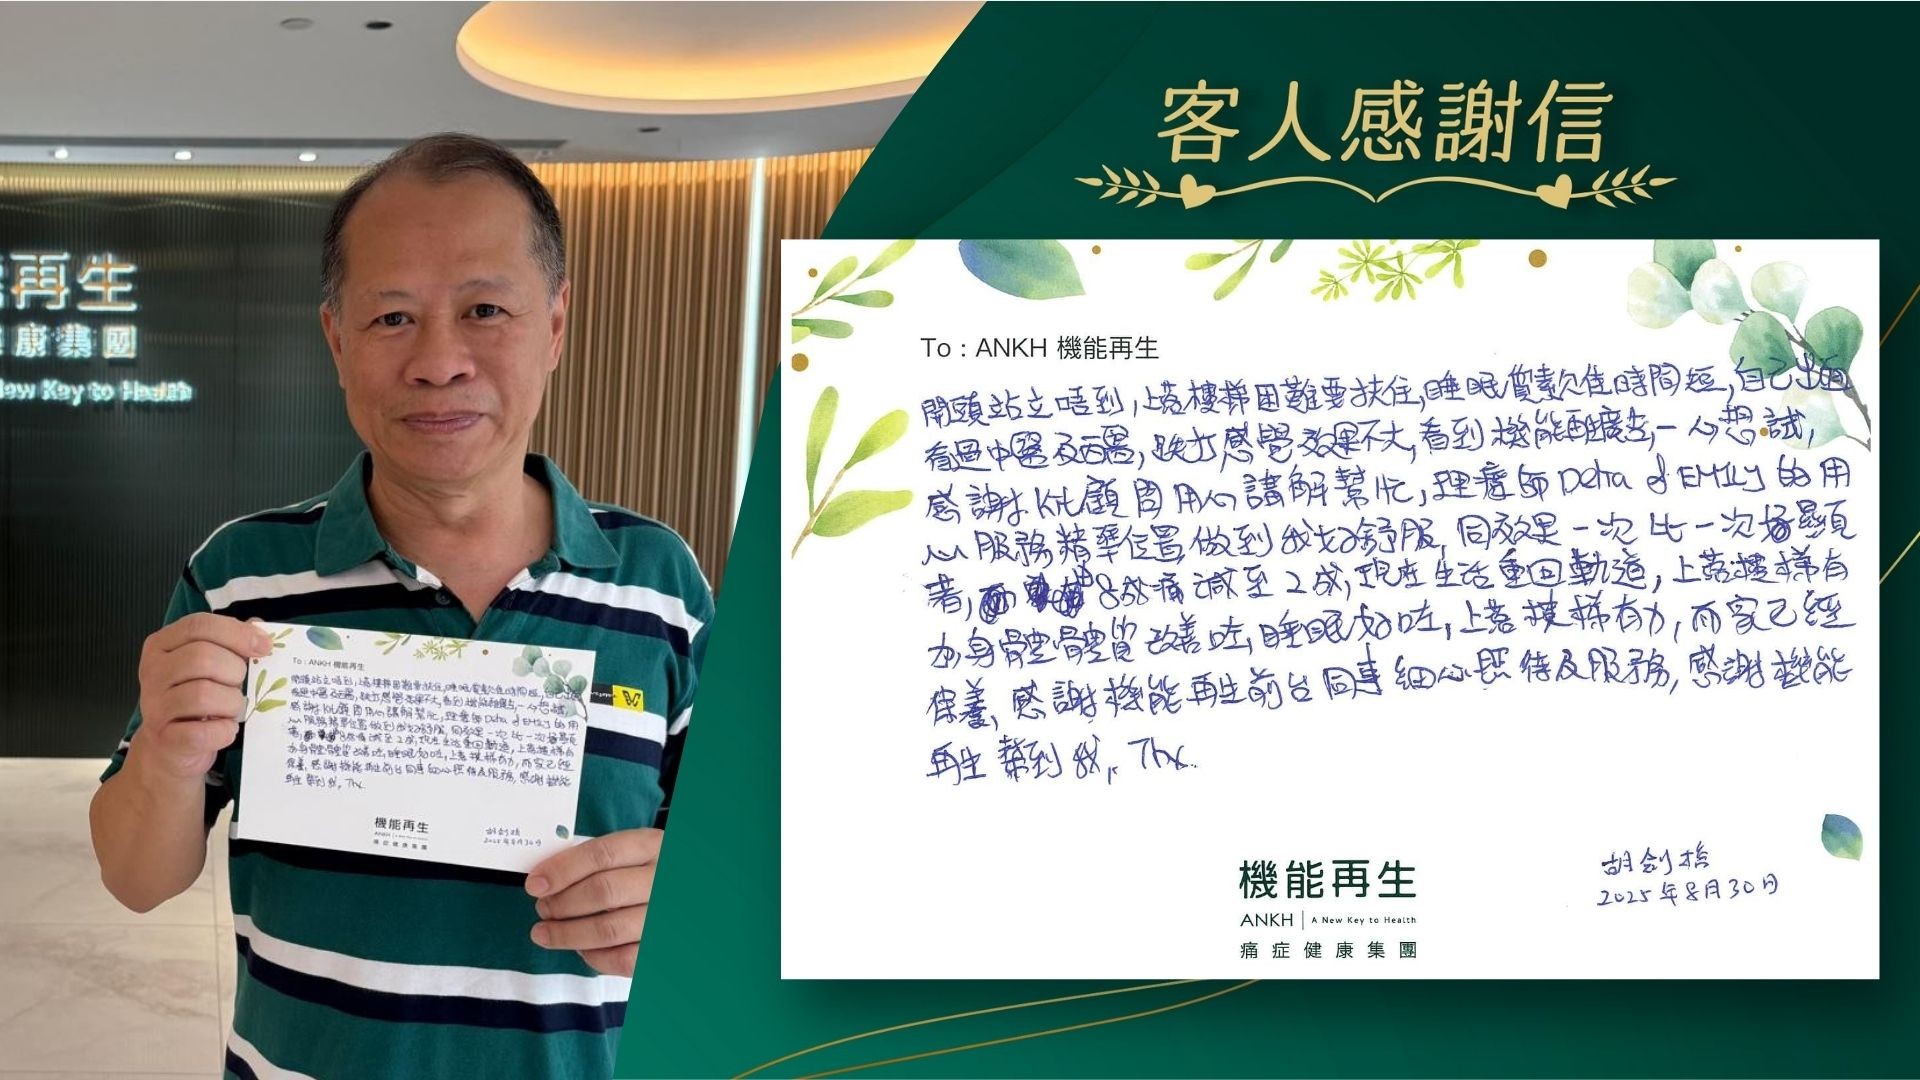 客人感謝信
再生
康集團
New Key to Health
To : ANKH 機能再生
開頭站立唔到,上落樓梯困難要扶住,睡眠質素欠佳時間短,自己出面
有過中醫及西醫,跌打,感覺效果不大,看到機能再生廣告,一心想試,
感謝Kit顧問用心講解幫忙,理療師Delta & EMILY的用
心服務精準位置做到我好舒服,同效果一次比一次顯
著, 8成痛減至2成,現在生活重回軌道,上落樓梯有
力,身體體質改善咗,睡眠好咗,上落樓梯有力,而家已經
保養,感謝機能再生前台同事細心照待及服務,感謝機能
再生幫到我,Thx.
機能再生
ANKH | A New Key to Health
痛症健康集團
胡剑
2025年8月30日